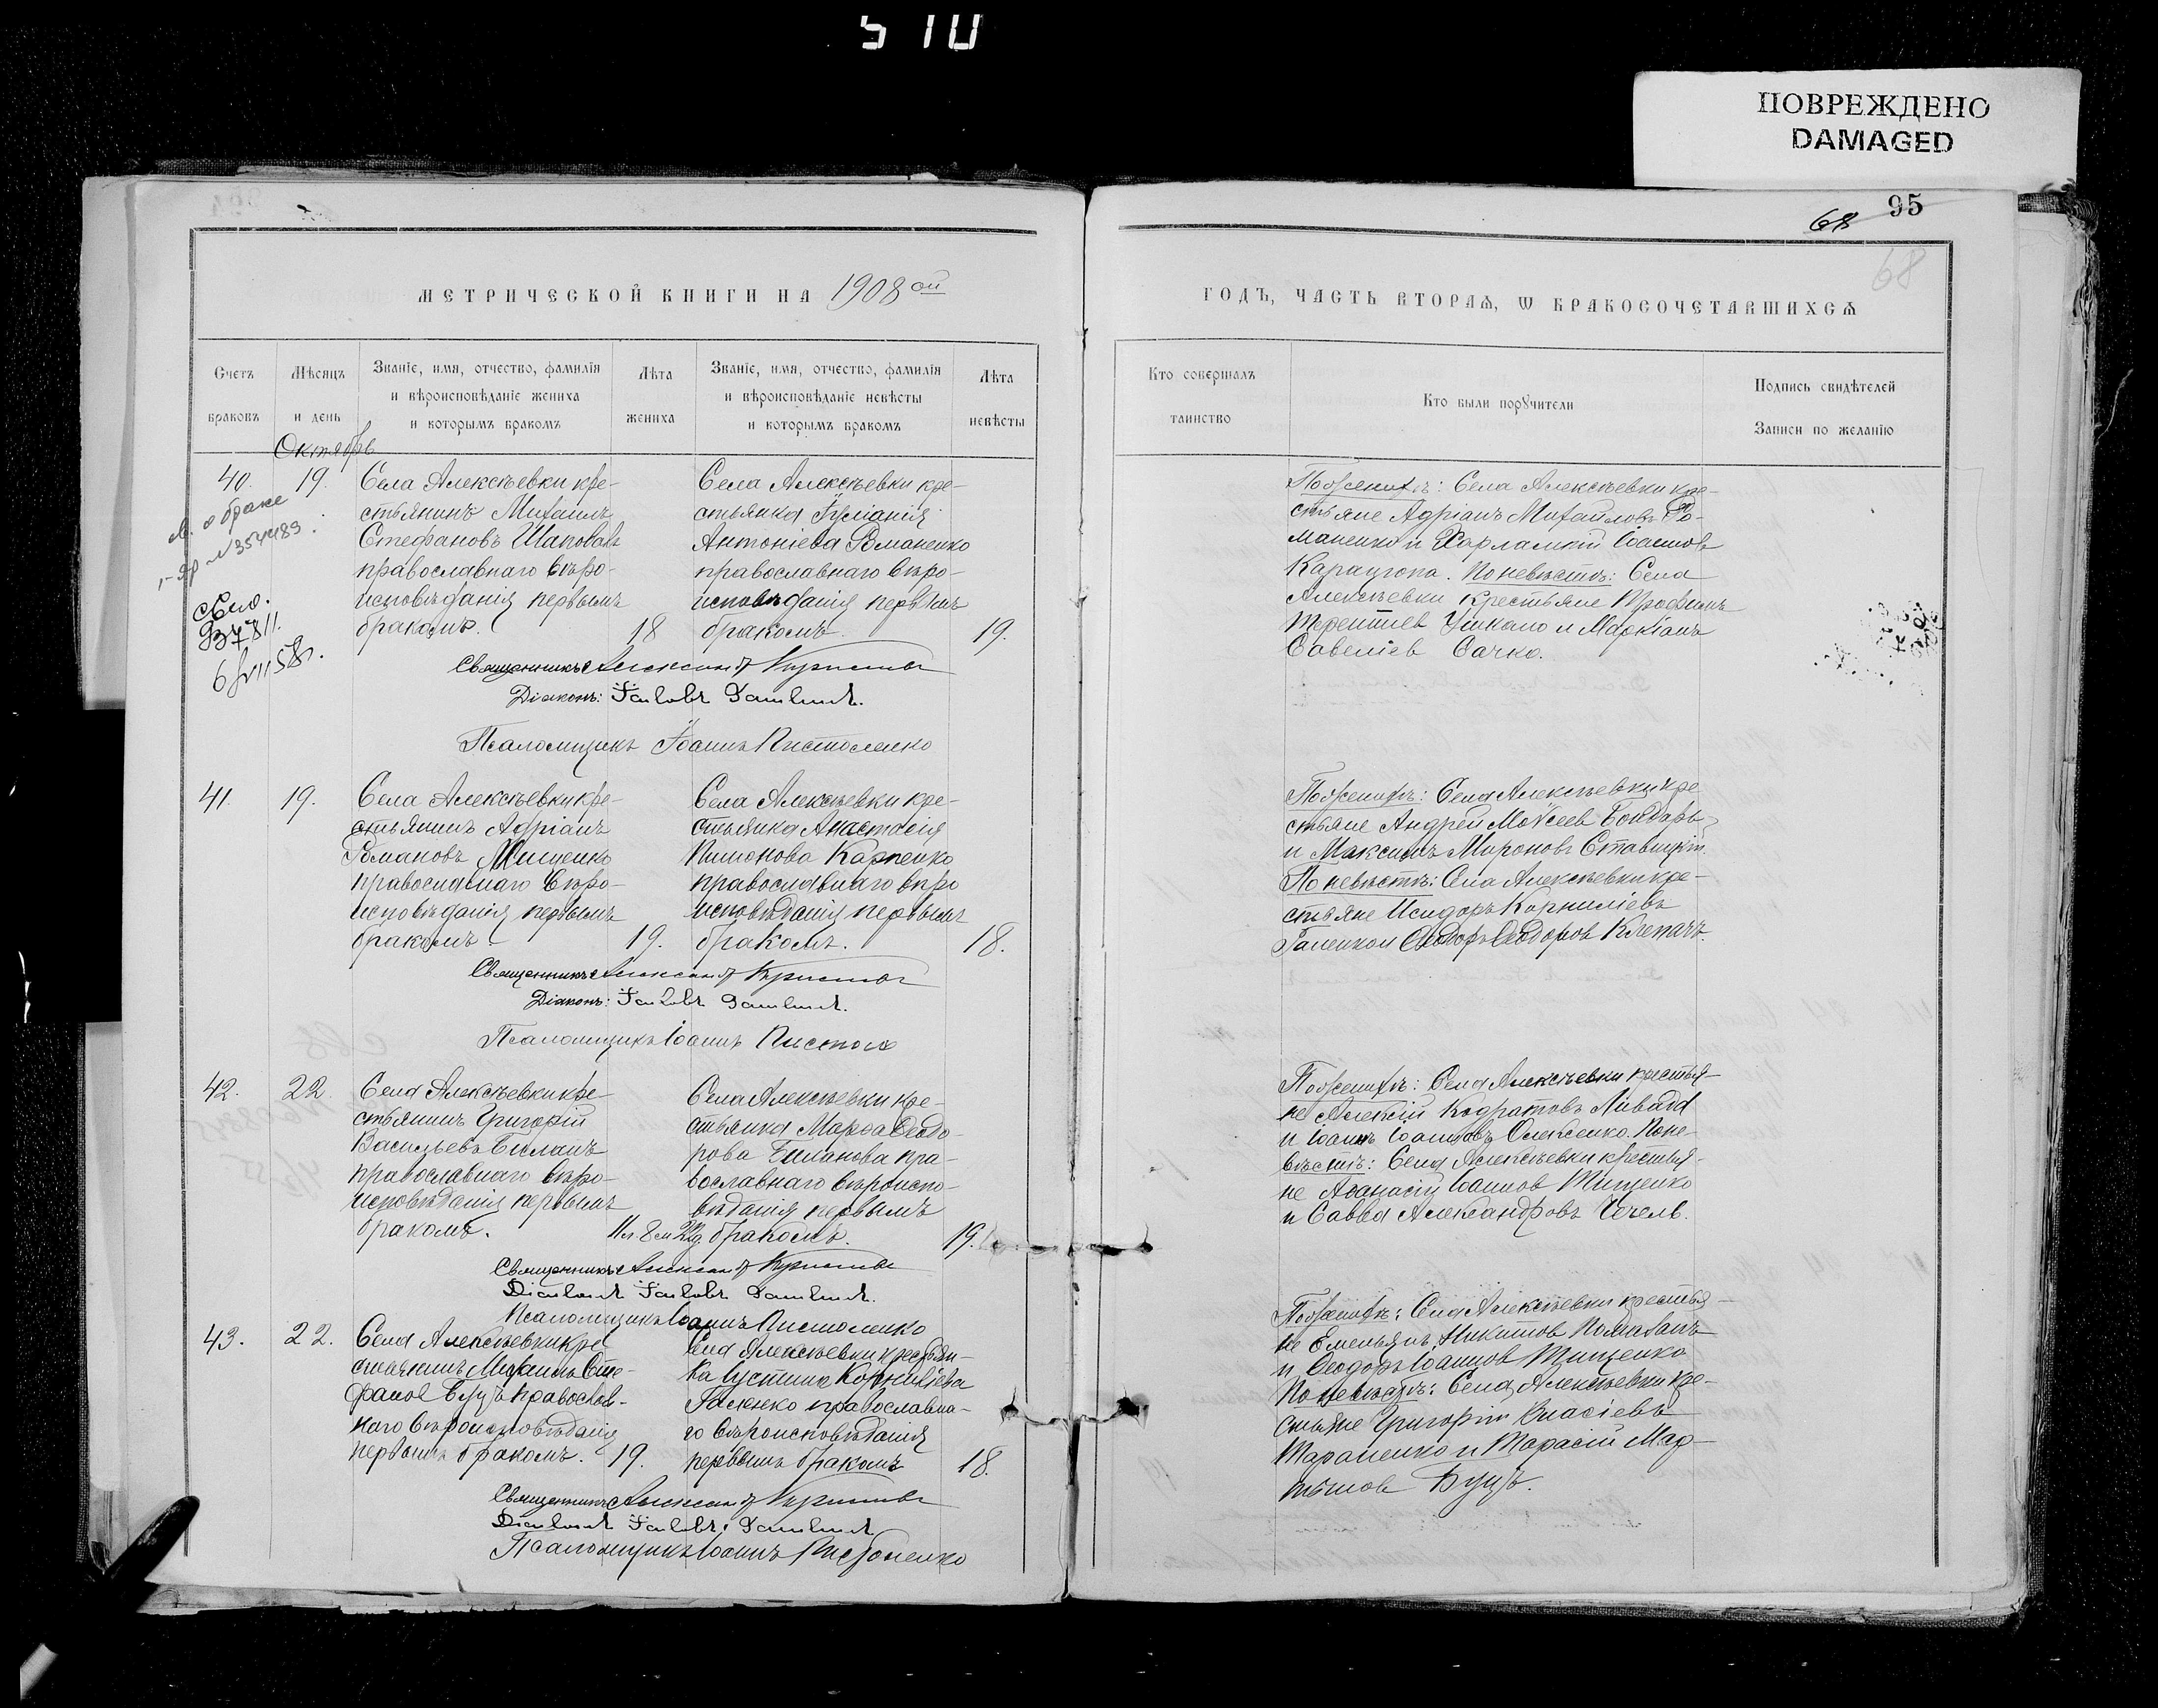 510
ПОВРЕЖДЕНО
DAMAGED
95
68
68
МЕТРИЧЕСКОЙ КНИГИ НА 1908 ой
ГОДЪ, ЧАСТЬ ВТОРАѦ, Ѡ БРАКОСОЧЕТАВШИХСѦ
Счетъ браковъ
Мѣсяцъ и день
Званіе, имя, отчество, фамилія и вѣроисповѣданіе жениха и которымъ бракомъ
Лѣта жениха
Званіе, имя, отчество, фамилія и вѣроисповѣданіе невѣсты и которымъ бракомъ
Лѣта невѣсты
Кто совершалъ таинство
Кто были порꙋчители
Подпись свидѣтелей Записи по желанію
Октябрь
40. 19.
о браке
№354489
Села Алексѣевки кре-
стьянинъ Михаилъ
Стефановъ Шаповалъ
православнаго вѣро-
исповѣданія первымъ
бракомъ. 18
Села Алексѣевки кре-
стьянка Іуліанія
Антоніева Романенко
православнаго вѣро-
исповѣданія первымъ
бракомъ. 19.
Священникъ
Діаконъ: Іаковъ
Псаломщикъ Іоаннъ Пистоленко
По женихѣ: Села Алексѣевки кре-
стьяне Адріанъ Михайловъ Ро-
маненко и Харлампій Іоанновъ
. По невѣстѣ: Села
Алексѣевки крестьяне Трофимъ
Терентіев и Маркіанъ
Савеліев Сачко.
41. 19.
Села Алексѣевки кре-
стьянинъ Адріанъ
Романовъ Мищенко
православнаго вѣро-
исповѣданія первымъ
бракомъ 19.
Села Алексѣевки кре-
стьянка Анастасія
Пименова Карпенко
православнаго вѣро
исповѣданія первымъ
бракомъ. 18.
Священникъ
Діаконъ: Іаковъ
Псаломщикъ Іоаннъ
По женихѣ: Села Алексѣевки кре
стьяне Андрей Моѵсеев Бондарь
и Максимъ Мироновъ Ставицкій.
По невѣстѣ: Села Алексѣевки кре-
стьяне Исидоръ Корниліевъ
Галенко и Ѳеодоръ Ѳеодоров Клепачъ.
42. 22
Села Алексѣевки кре
стьянинъ Григорій
Васильевъ Биланъ
православнаго вѣро-
исповѣданія первымъ
бракомъ.
Села Алексѣевки кре-
стьянка Марѳа Ѳеодо-
рова пра-
вославнаго вѣроиспо-
вѣданія первымъ
бракомъ. 19.
Священникъ
Діаконъ Іаковъ
Псаломщикъ Іоаннъ Пистоленко
По женихѣ: Села Алексѣевки крестья-
не Алексій Кодратовъ
и Іоаннъ Іоанновъ Олексенко. По не-
вѣстѣ: Села Алексѣевки крестья-
не Аѳанасій Іоаннов Тищенко
и Савва Александровъ Чечель.
43. 22.
Села Алексѣевки кре
стьянинъ Михаилъ Сте-
фанов Буцъ православ-
наго вѣроисповѣданія
первымъ бракомъ. 19.
Села Алексѣевки крестьян-
ка Іустина Корниліева
Галенко православна-
го вѣроисповѣданія
первымъ бракомъ 18.
Священникъ
Діаконъ Іаковъ
Псаломщикъ Іоаннъ Пистоленко
По женихѣ: Села Алексѣевки крестья-
не Емельянъ Никитов
и Ѳеодоръ Іоаннов Тищенко
По невѣстѣ: Села Алексѣевки кре-
стьяне Григорій Власіевъ
Тараненко и Тарасій Мар-
тынов Буцъ.